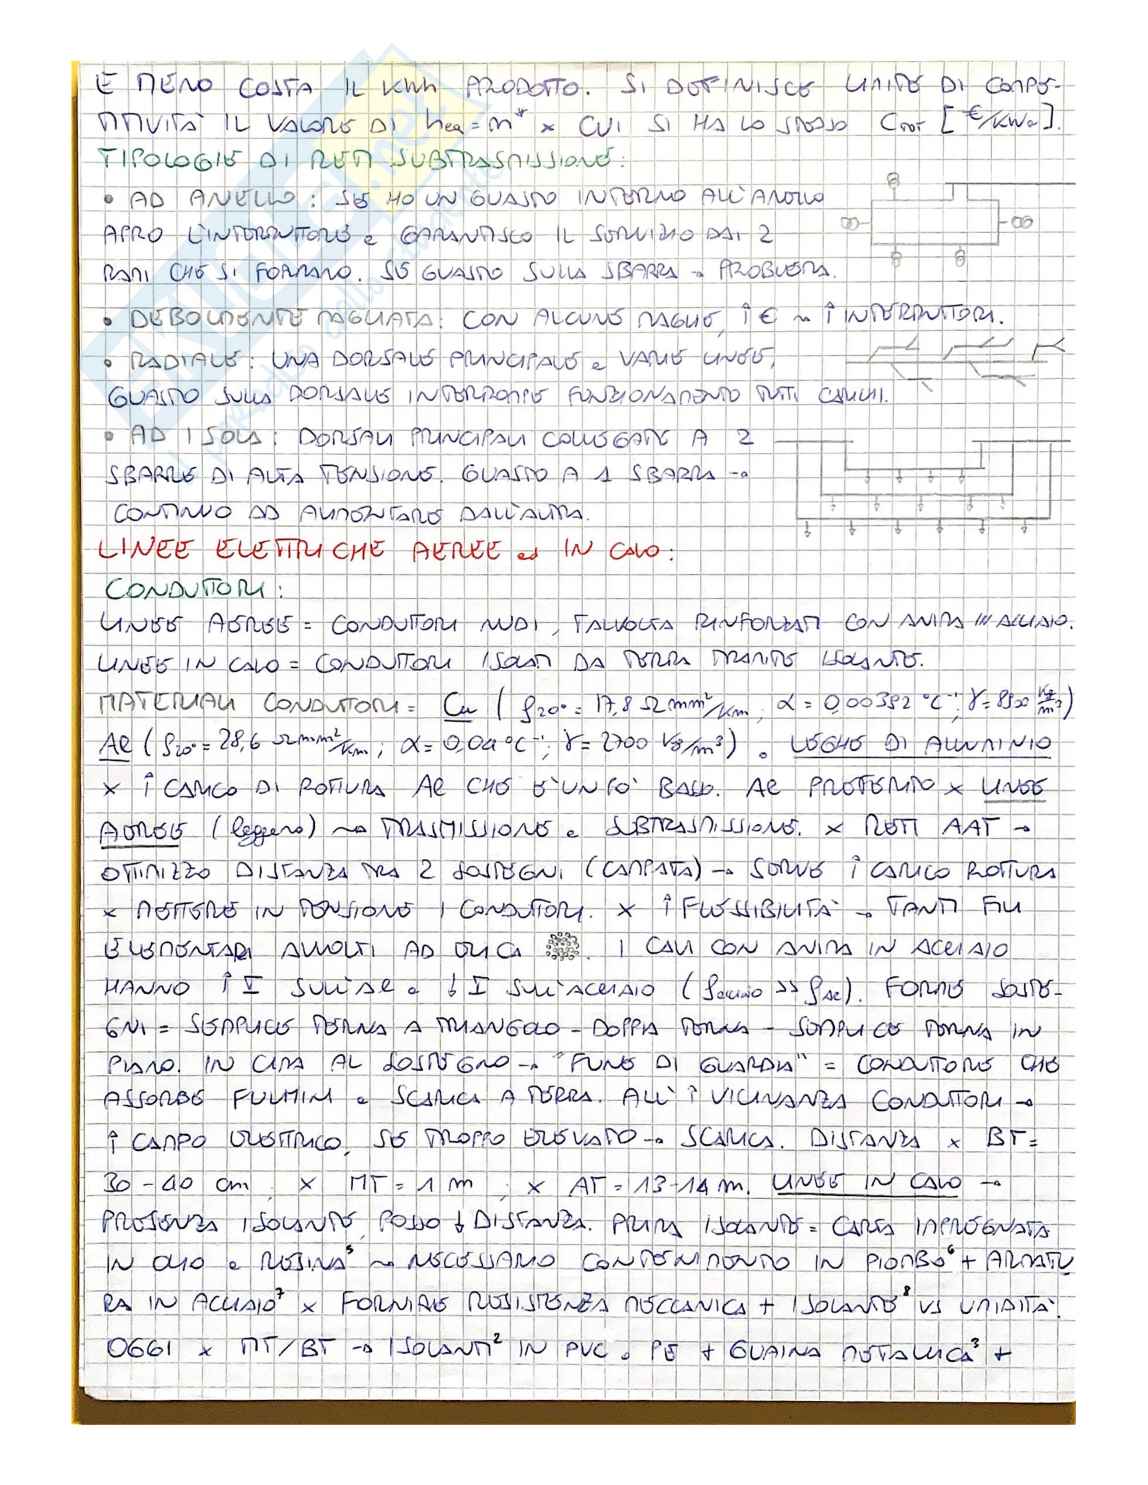 E MENO COSTA IL KWh PRODOTTO. SI DEFINISCE LIMITE DI COMPE-
TITIVITÀ IL VALORE DI heq = m* × CUI SI HA LO STESSO CTOT [€/KWe].
TIPOLOGIE DI RETI SUBTRASMISSIONE:
• AD ANELLO: SE HO UN GUASTO INTERNO ALL'ANELLO
APRO L'INTERRUTTORE e GARANTISCO IL SERVIZIO DAI 2
RAMI CHE SI FORMANO. SE GUASTO SULLA SBARRA → PROBLEMA.
• DEBOLMENTE MAGLIATA: CON ALCUNE MAGLIE, ↑€ ~ ↑INTERRUTTORI.
• RADIALE: UNA DORSALE PRINCIPALE e VARIE LINEE,
GUASTO SULLA DORSALE INTERROMPE FUNZIONAMENTO TUTTI CARICHI.
• AD ISOLA: DORSALI PRINCIPALI COLLEGATE A 2
SBARRE DI ALTA TENSIONE. GUASTO A 1 SBARRA →
CONTINUO AD ALIMENTARE DALL'ALTRA.
LINEE ELETTRICHE AEREE ed IN CAVO:
CONDUTTORI:
LINEE AEREE = CONDUTTORI NUDI, TALVOLTA RINFORZATI CON ANIMA IN ACCIAIO.
LINEE IN CAVO = CONDUTTORI ISOLATI DA TERRA TRAMITE ISOLANTE.
MATERIALI CONDUTTORI = Cu (ρ20° = 17,8 Ωmm²/Km; α = 0,00392 °C⁻¹; γ = 8900 Kg/m³)
Al (ρ20° = 28,6 Ωmm²/Km; α = 0,04 °C⁻¹; γ = 2700 Kg/m³) e LEGHE DI ALLUMINIO
× ↑CARICO DI ROTTURA Al CHE È UN PO' BASSO. Al PREFERITO × LINEE
AEREE (leggero) ~→ TRASMISSIONE e SUBTRASMISSIONE. × RETI AAT →
OTTIMIZZO DISTANZA TRA 2 SOSTEGNI (CAMPATA) → SERVE ↑CARICO ROTTURA
× METTERE IN TENSIONE I CONDUTTORI. × ↑FLESSIBILITÀ → TANTI FILI
ELEMENTARI AVVOLTI AD ELICA. I CAVI CON ANIMA IN ACCIAIO
HANNO ↑I SULL'Al e ↓I SULL'ACCIAIO (ρacciaio >> ρAl). FORME SOSTE-
GNI = SEMPLICE TERNA A TRIANGOLO - DOPPIA TERNA - SEMPLICE TERNA IN
PIANO. IN CIMA AL SOSTEGNO → "FUNE DI GUARDIA" = CONDUTTORE CHE
ASSORBE FULMINI e SCARICA A TERRA. ALL'↑VICINANZA CONDUTTORI →
↑CAMPO ELETTRICO, SE TROPPO ELEVATO → SCARICA. DISTANZA × BT =
30-40 cm; × MT = 1 m; × AT = 13-14 m. LINEE IN CAVO →
PRESENZA ISOLANTE, POSSO ↓DISTANZA. PRIMA ISOLANTE = CARTA IMPREGNATA
IN OLIO e RESINA⁵ ~ NECESSARIO CONTENIMENTO IN PIOMBO⁶ + ARMATU
RA IN ACCIAIO⁷ × FORNIRE RESISTENZA MECCANICA + ISOLANTE⁸ VS UMIDITÀ.
OGGI × MT/BT → ISOLANTI² IN PVC e PE + GUAINA METALLICA³ +